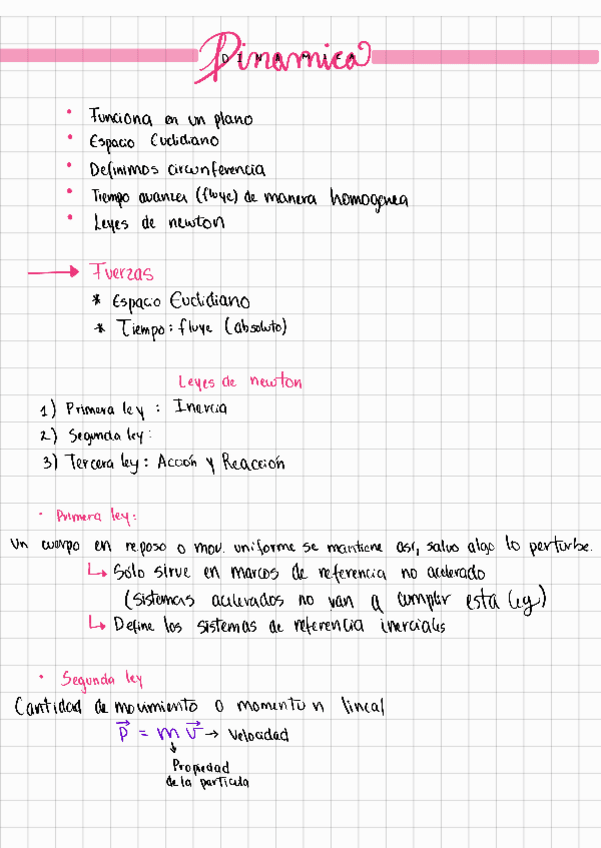 Dinamica
DINAMICA
• Funciona en un plano
• Espacio Euclidiano
• Definimos circunferencia
• Tiempo avanza (fluye) de manera homogenea
• Leyes de newton
→ Fuerzas
* Espacio Euclidiano
* Tiempo: fluye (absoluto)
Leyes de newton
1) Primera ley : Inercia
2) Segunda ley:
3) Tercera ley: Acción y Reacción
· Primera ley:
Un cuerpo en reposo o mov. uniforme se mantiene así, salvo algo lo perturbe.
↳ Sólo sirve en marcos de referencia no acelerado
(sistemas acelerados no van a cumplir esta ley)
↳ Define los sistemas de referencia inerciales
• Segunda ley
Cantidad de movimiento o momentun lineal
p⃗ = m v⃗ → Velocidad
↓
Propiedad
de la particula